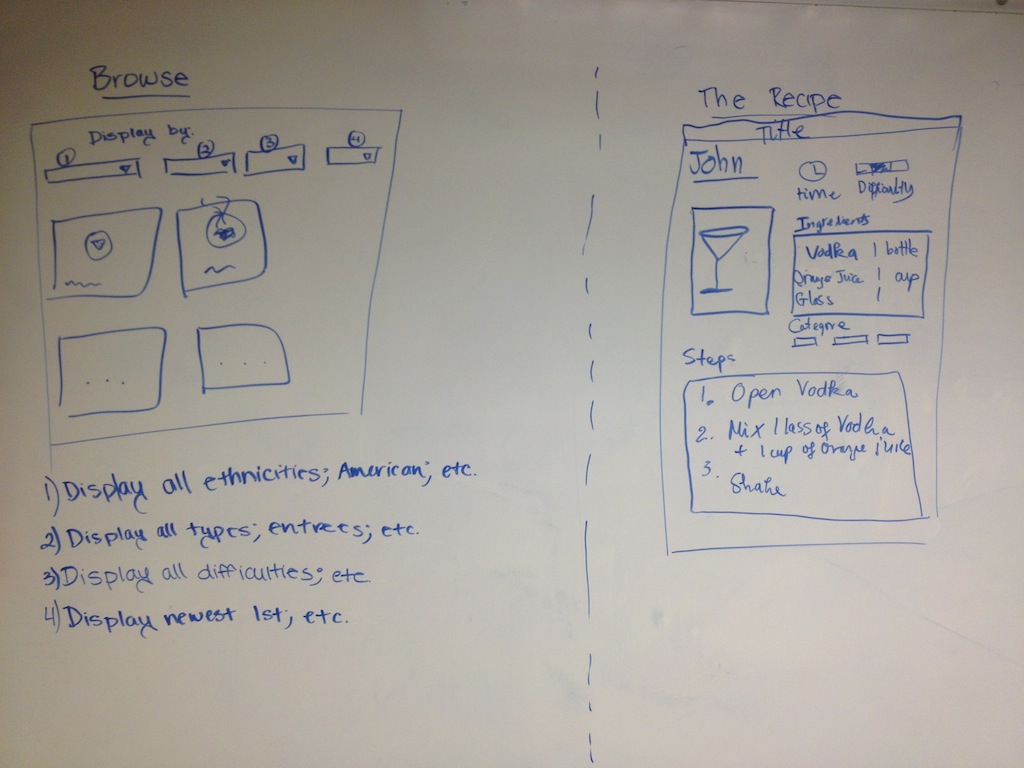 Browse
Display by:
1 2 3 4
1) Display all ethnicities; American; etc.
2) Display all types; entrees; etc.
3) Display all difficulties; etc
4) Display newest 1st; etc.
The Recipe
Title
John
time
Ingredients
Vodka 1 bottle
Orange Juice 1 cup
Glass 1
Categore
Steps
1. Open Vodka
2. Mix 1 lass of Vodka
+ 1 cup of Orange juice
3. Shake